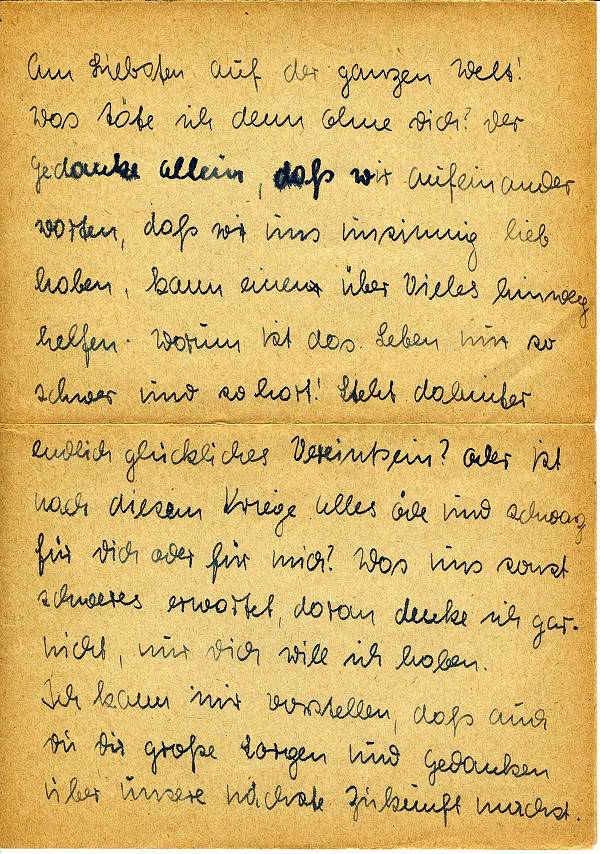 Am Liebsten auf der ganzen Welt!
Was täte ich denn ohne Dich? Der
Gedanke allein, daß wir aufeinander
warten, daß wir uns unsinnig lieb
haben, kann einem über Vieles hinweg
helfen. Warum ist das Leben nur so
schwer und so hart! Steht dahinter
endlich glückliches Vereintsein? oder ist
nach diesem Kriege alles öde und schwarz
für Dich oder für mich? Was uns sonst
schweres erwartet, daran denke ich gar-
nicht, nur Dich will ich haben.
Ich kann mir vorstellen, daß auch
Du Dir große Sorgen und Gedanken
über unsere nächste Zukunft machst.